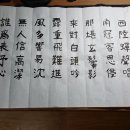 西陸蟬聲唱
南冠客思侵
那堪玄鬢影
來對白頭吟
露重飛難進
風多響易沈
無人信高潔
誰為表予心